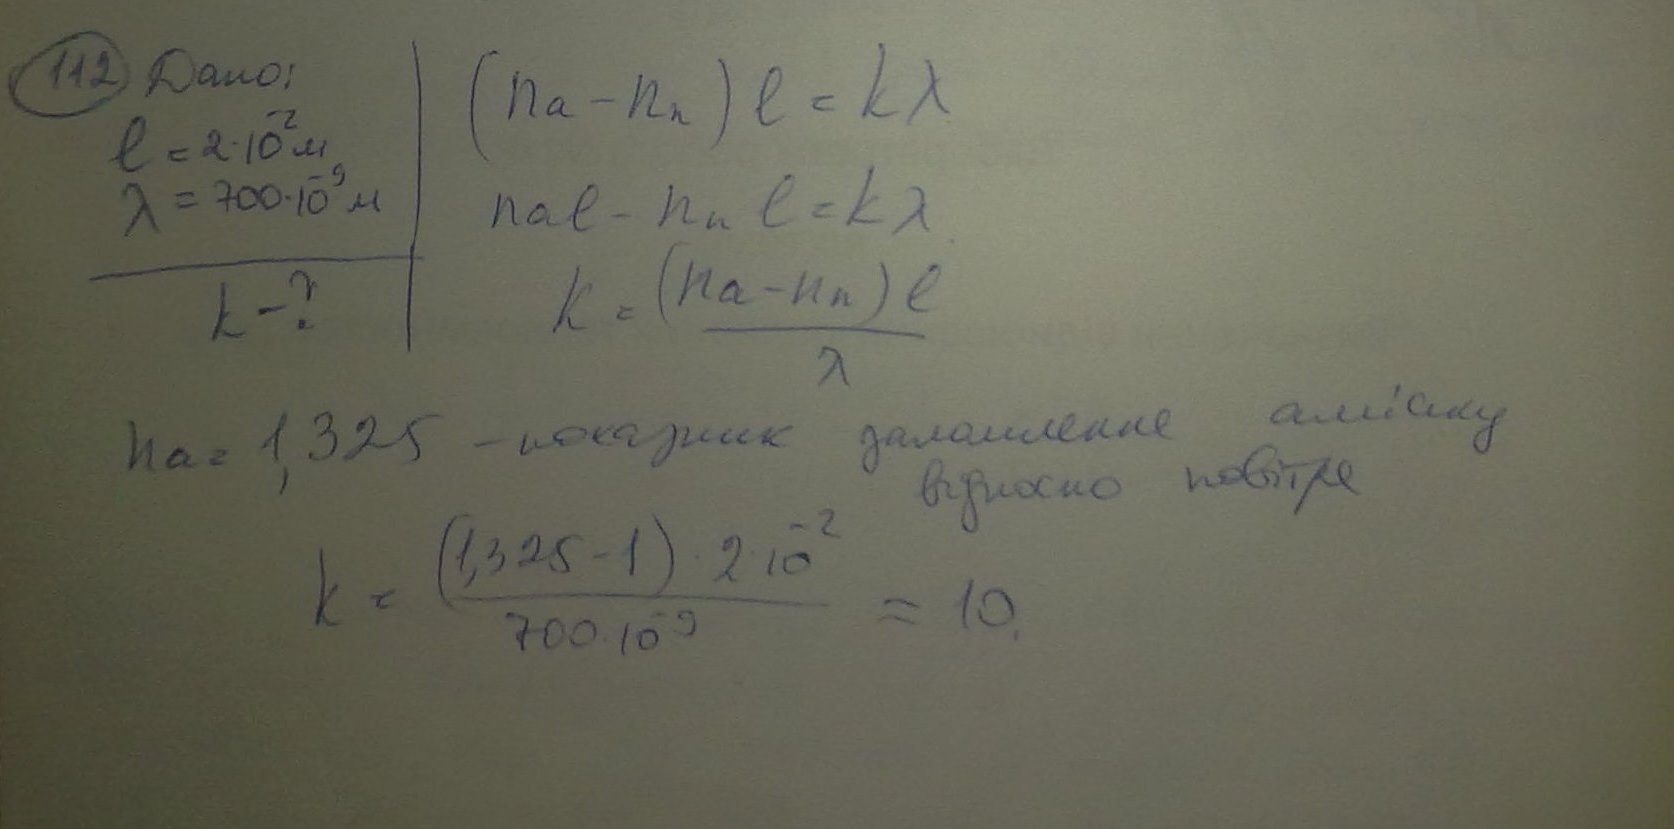 112 Дано:
l = 2·10⁻² м
λ = 700·10⁻⁹ м
k - ?
(nₐ - nₙ) l = kλ
nₐl - nₙ l = kλ
k = (nₐ - nₙ) l / λ
nₐ = 1,325 - показник заломлення аміаку
відносно повітря
k = (1,325 - 1) · 2·10⁻² / 700·10⁻⁹ = 10.